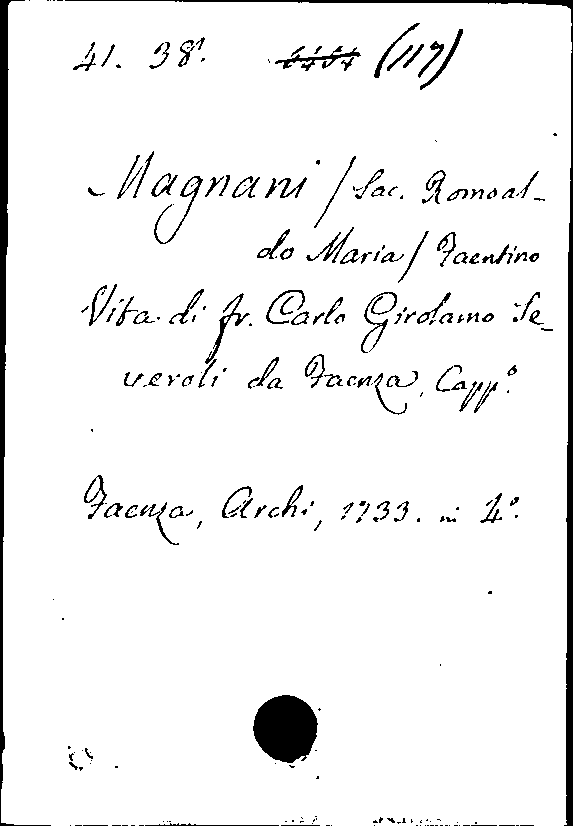 41. 38¹. (117)
Magnani / Sac. Romoal-
do Maria / Faentino
Vita di fr. Carlo Girolamo Se-
veroli da Faenza, Capp.º
Faenza, Archi, 1733. in 4º.